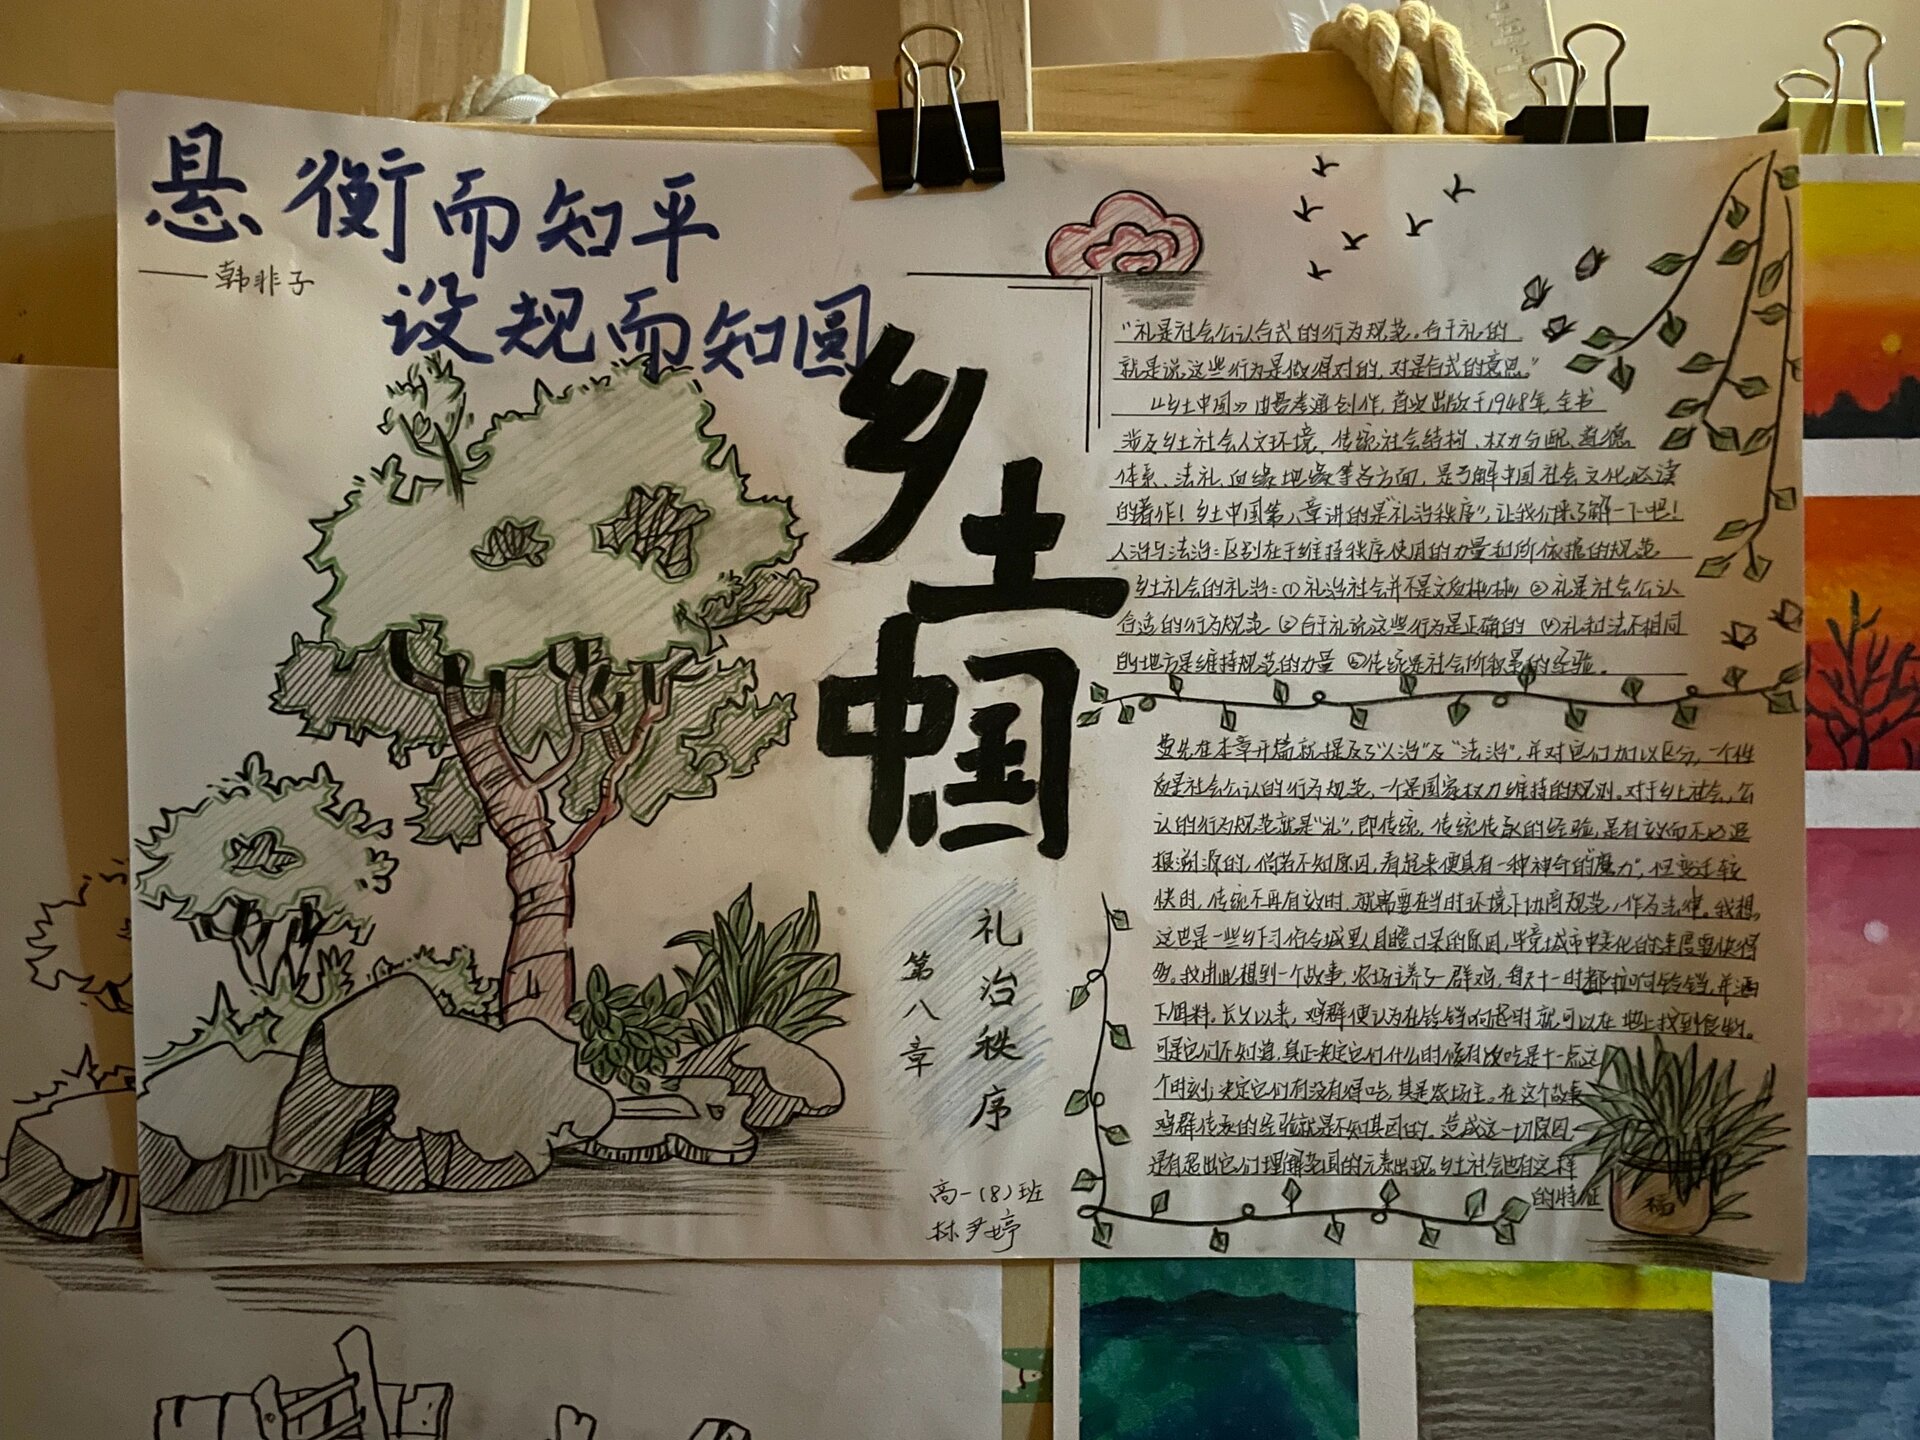 悬衡而知平
——韩非子
设规而知圆
乡土中国
第八章
礼治秩序
高一(8)班
林尹婷
"礼是社会公认合式的行为规范。合于礼的
就是说这些行为是做得对的,对是合式的意思。"
《乡土中国》由费孝通创作,首次出版于1948年,全书
涉及乡土社会人文环境、传统社会结构、权力分配、道德
体系、法礼、血缘地缘等各方面,是了解中国社会文化必读
的著作!乡土中国第八章讲的是"礼治秩序",让我们来了解一下吧!
人治与法治:区别在于维持秩序使用的力量和所依据的规范
乡土社会的礼治:(1)礼治社会并不是文质彬彬 (2)礼是社会公认
合适的行为规范 (3)合于礼说这些行为是正确的 (4)礼和法不相同
的地方是维持规范的力量 (5)传统是社会所积累的经验。
首先在本章开篇就提及了"人治"及"法治",并对它们加以区分,一个性
质是社会公认的行为规范,一个是国家权力维持的规则。对于乡土社会,公
认的行为规范就是"礼",即传统,传统传承的经验,是有效而不必追
根溯源的,倘若不知原因,看起来便具有一种神奇的"魔力",但变迁较
快时,传统不再有效时,就需要在当时环境下协商规范,作为法律。我想,
这也是一些乡下习俗令城里人目瞪口呆的原因,毕竟城市中变化的速度要快得
多。我由此想到一个故事,农场主养了一群鸡,每天十一时都拉响铃铛,并洒
下饵料,长久以来,鸡群便认为在铃铛响起时就可以在地上找到食物。
可是它们不知道,真正决定它们什么时候有饭吃是十一点这
个时刻;决定它们有没有得吃,其是农场主。在这个故事
鸡群传承的经验就是不知其因的。造成这一切原因
是有超出它们理解范围的元素出现,乡土社会也有这样
的特征
福